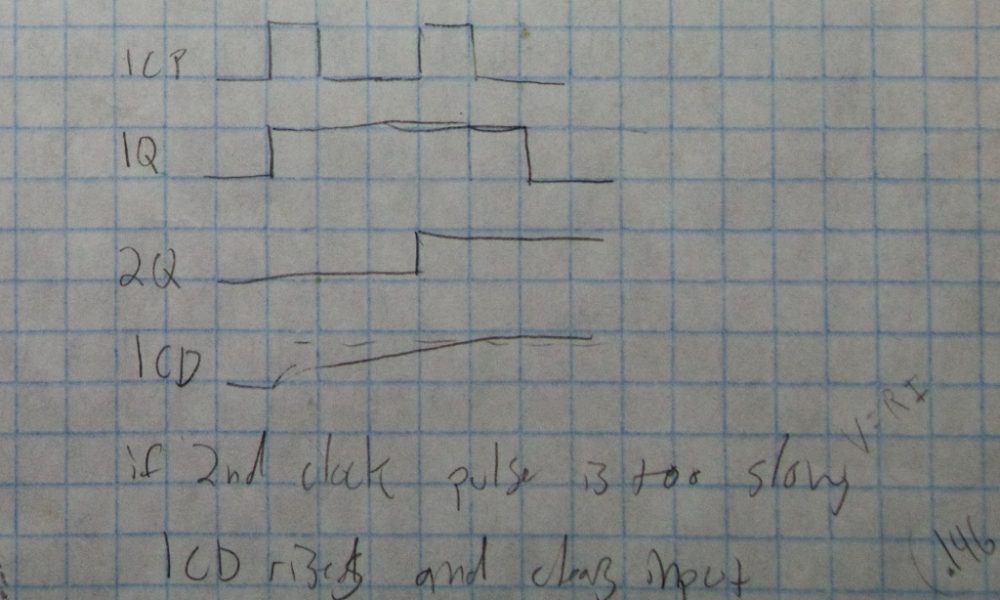 1CP
1Q
2Q
1CD
V=RI
if 2nd clock pulse is too slow,
1CD rises and clears input
.146